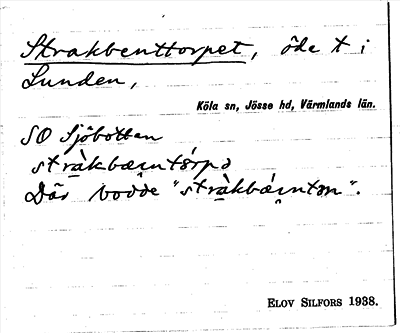 Strakbenttorpet, öde t i
Lunden,
Köla sn, Jösse hd, Värmlands län.
SO Sjöbotten
Där bodde
ELOV SILFORS 1938.